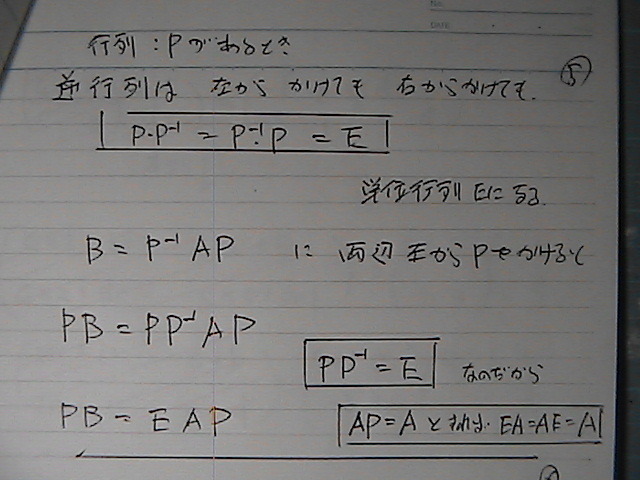 No.
DATE
行列：Pがあるとき
⑤
逆行列は 左から かけても 右からかけても.
P・P⁻¹ = P⁻¹・P = E
単位行列Eになる.
B = P⁻¹AP に 両辺左からPをかけると
PB = PP⁻¹AP
PP⁻¹ = E なのだから
PB = EAP
AP=A とすれば EA=AE=A